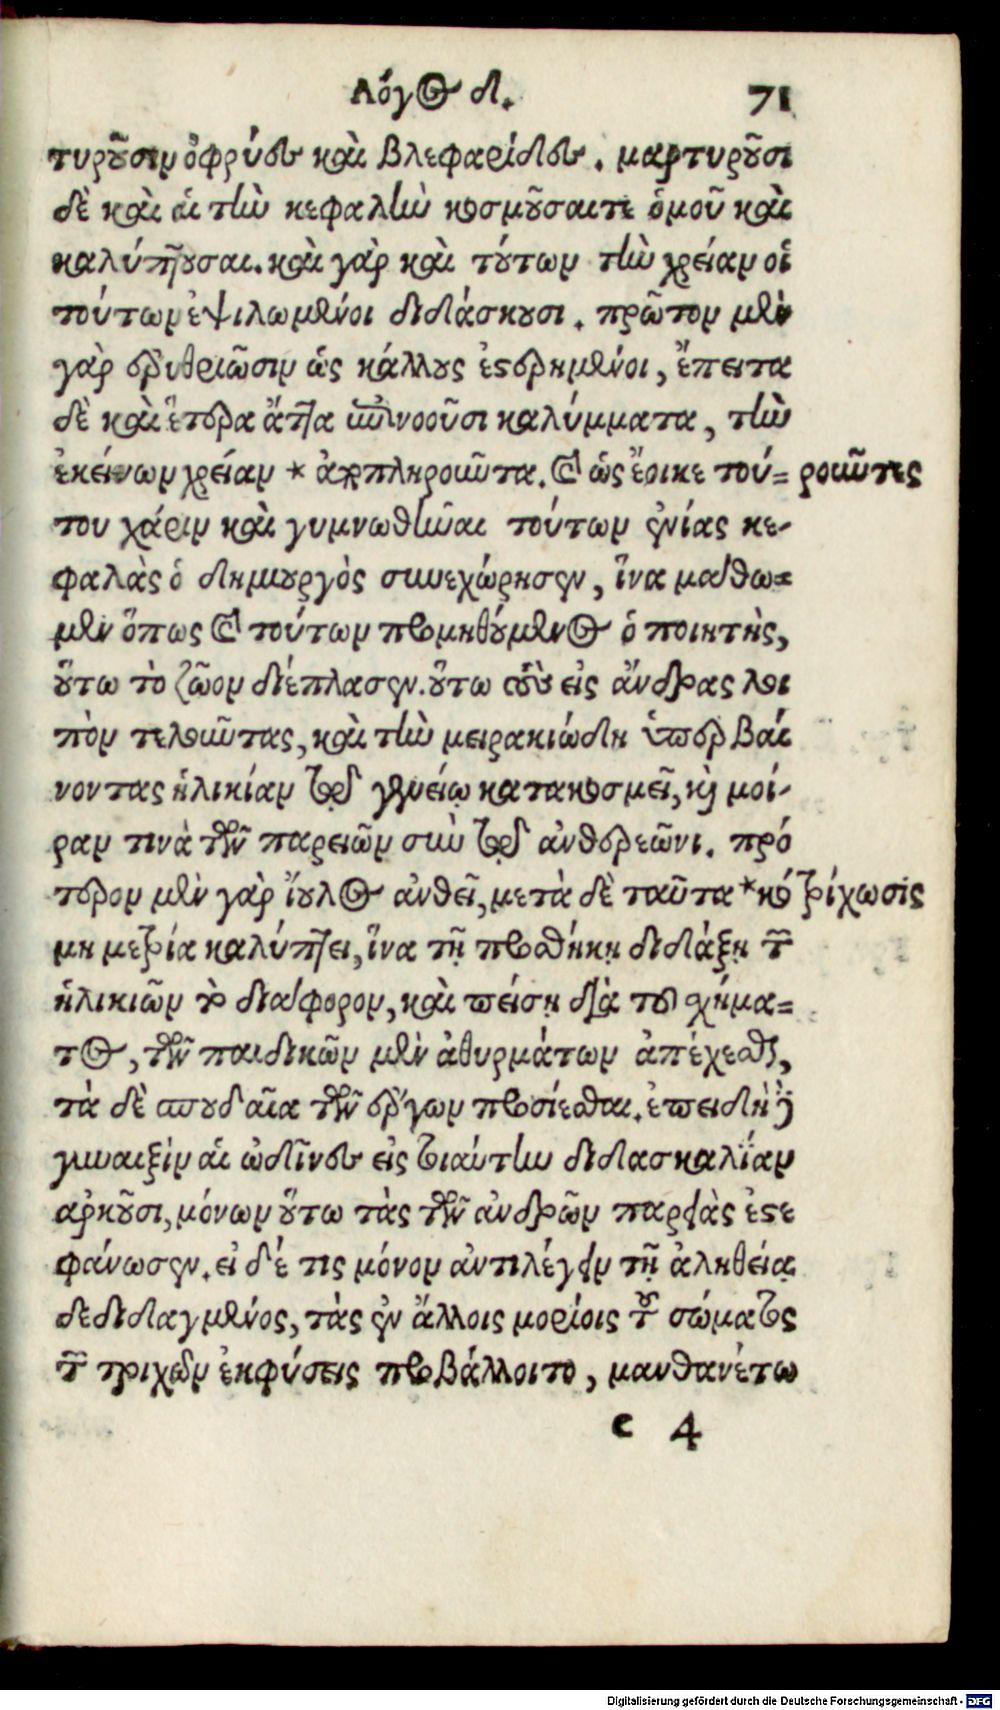 Λόγος δ. 71
τυροῦσιν ὀφρύες καὶ βλεφαρίδες. μαρτυροῦσι
δὲ καὶ αἱ τὴν κεφαλὴν κοσμοῦσαιτε ὁμοῦ καὶ
καλύπτουσαι. καὶ γὰρ καὶ τούτων τὴν χρείαν οἱ
τούτων ἐψιλωμένοι διδάσκουσι. πρῶτον μὲν
γὰρ ἐρυθριῶσιν ὡς κάλλους ἐστερημένοι, ἔπειτα
δὲ καὶ ἕτερα ἄττα ἐπινοοῦσι καλύμματα, τὴν
ἐκείνων χρείαν * ἀναπληροῦντα. καὶ ὡς ἔοικε τού= ροῦντες
του χάριν καὶ γυμνωθῆναι τούτων ἐνίας κε-
φαλὰς ὁ δημιουργὸς συνεχώρησεν, ἵνα μάθω=
μεν ὅπως καὶ τούτων προμηθούμενος ὁ ποιητὴς,
οὕτω τὸ ζῶον διέπλασεν. οὕτω τοὺς εἰς ἄνδρας λοι
πὸν τελοῦντας, καὶ τὴν μειρακιώδη ὑπερβαί
νοντας ἡλικίαν τῷ γενείῳ κατακοσμεῖ, καὶ μοί-
ραν τινὰ τῶν παρειῶν σὺν τῷ ἀνθερεῶνι. πρό
τερον μὲν γὰρ ἴουλος ἀνθεῖ, μετὰ δὲ ταῦτα * κό τρίχωσις
μη μετρία καλύπτει, ἵνα τῇ προσθήκῃ διδάξῃ τῶν
ἡλικιῶν τὸ διάφορον, καὶ πείσῃ διὰ τοῦ σχήμα=
τος, τῶν παιδικῶν μὲν ἀθυρμάτων ἀπέχεσθαι,
τὰ δὲ σπουδαῖα τῶν ἔργων προσίεσθαι. ἐπειδὴ δὲ
γυναιξὶν αἱ ὠδῖνες εἰς τοιαύτην διδασκαλίαν
ἀρκοῦσι, μόνων οὕτω τὰς τῶν ἀνδρῶν παρειὰς ἐστε
φάνωσεν. εἰ δέ τις μόνον ἀντιλέγειν τῇ ἀληθείᾳ
δεδιδαγμένος, τὰς ἐν ἄλλοις μορίοις τοῦ σώματος
τῶν τριχῶν ἐκφύσεις προβάλλοιτο, μανθανέτω
e 4
Digitalisierung gefördert durch die Deutsche Forschungsgemeinschaft - DFG